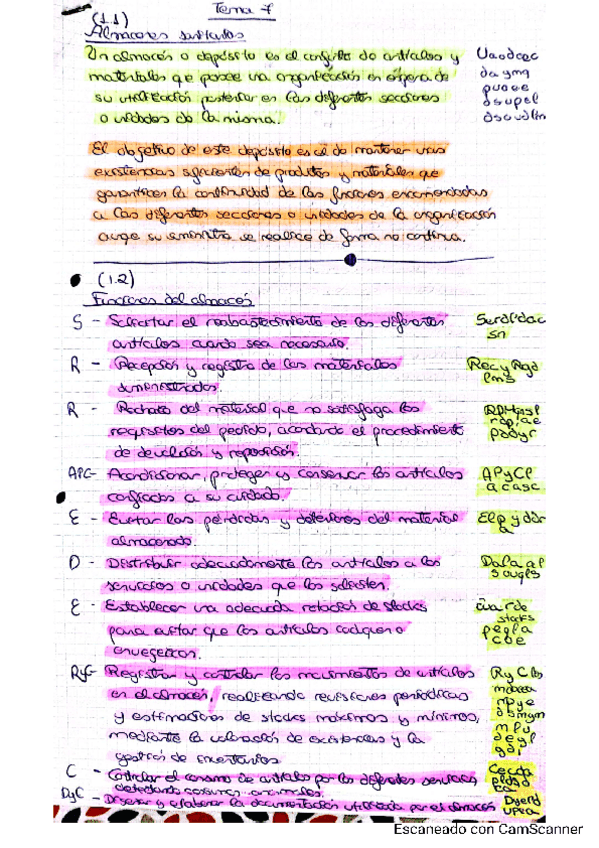 Tema 7
(1.1)
Almacenes sanitarios
Un almacén o depósito es el conjunto de artículos y
materiales que posee una organización en espera de
su utilización posterior en las diferentes secciones
o unidades de la misma.
El objetivo de este depósito es el de mantener unas
existencias suficientes de productos y materiales que
garanticen la continuidad de las funciones encomendadas
a las diferentes secciones o unidades de la organización
aunqe su suministro se realice de forma no continua.
(1.2)
Funciones del almacén
S - Solicitar el reabastecimiento de los diferentes
artículos cuando sea necesario.
R - Recepción y registro de los materiales
suministrados.
R - Rechazo del material que no satisfaga los
requisitos del pedido, acordando el procedimiento
de devolución y reposición.
APC - Acondicionar, proteger y conservar los artículos
confiados a su cuidado.
APyCl
a casc
E - Evitar las pérdidas y deterioros del material
almacenado.
D - Distribuir adecuadamente los artículos a los
servicios o unidades que los soliciten.
E - Establecer una adecuada rotación de stocks
para evitar que los artículos caduquen o
envejezcan.
RyC - Registrar y controlar los movimientos de artículos
en el almacén, realizando revisiones periódicas
y estimaciones de stocks máximos y mínimos,
mediante la valoración de existencias y la
gestión de inventarios
C - Controlar el consumo de artículos por los diferentes servicios
detectando consumos anormales.
DyC - Diseñar y elaborar la documentación utilizada por el almacén
Escaneado con CamScanner